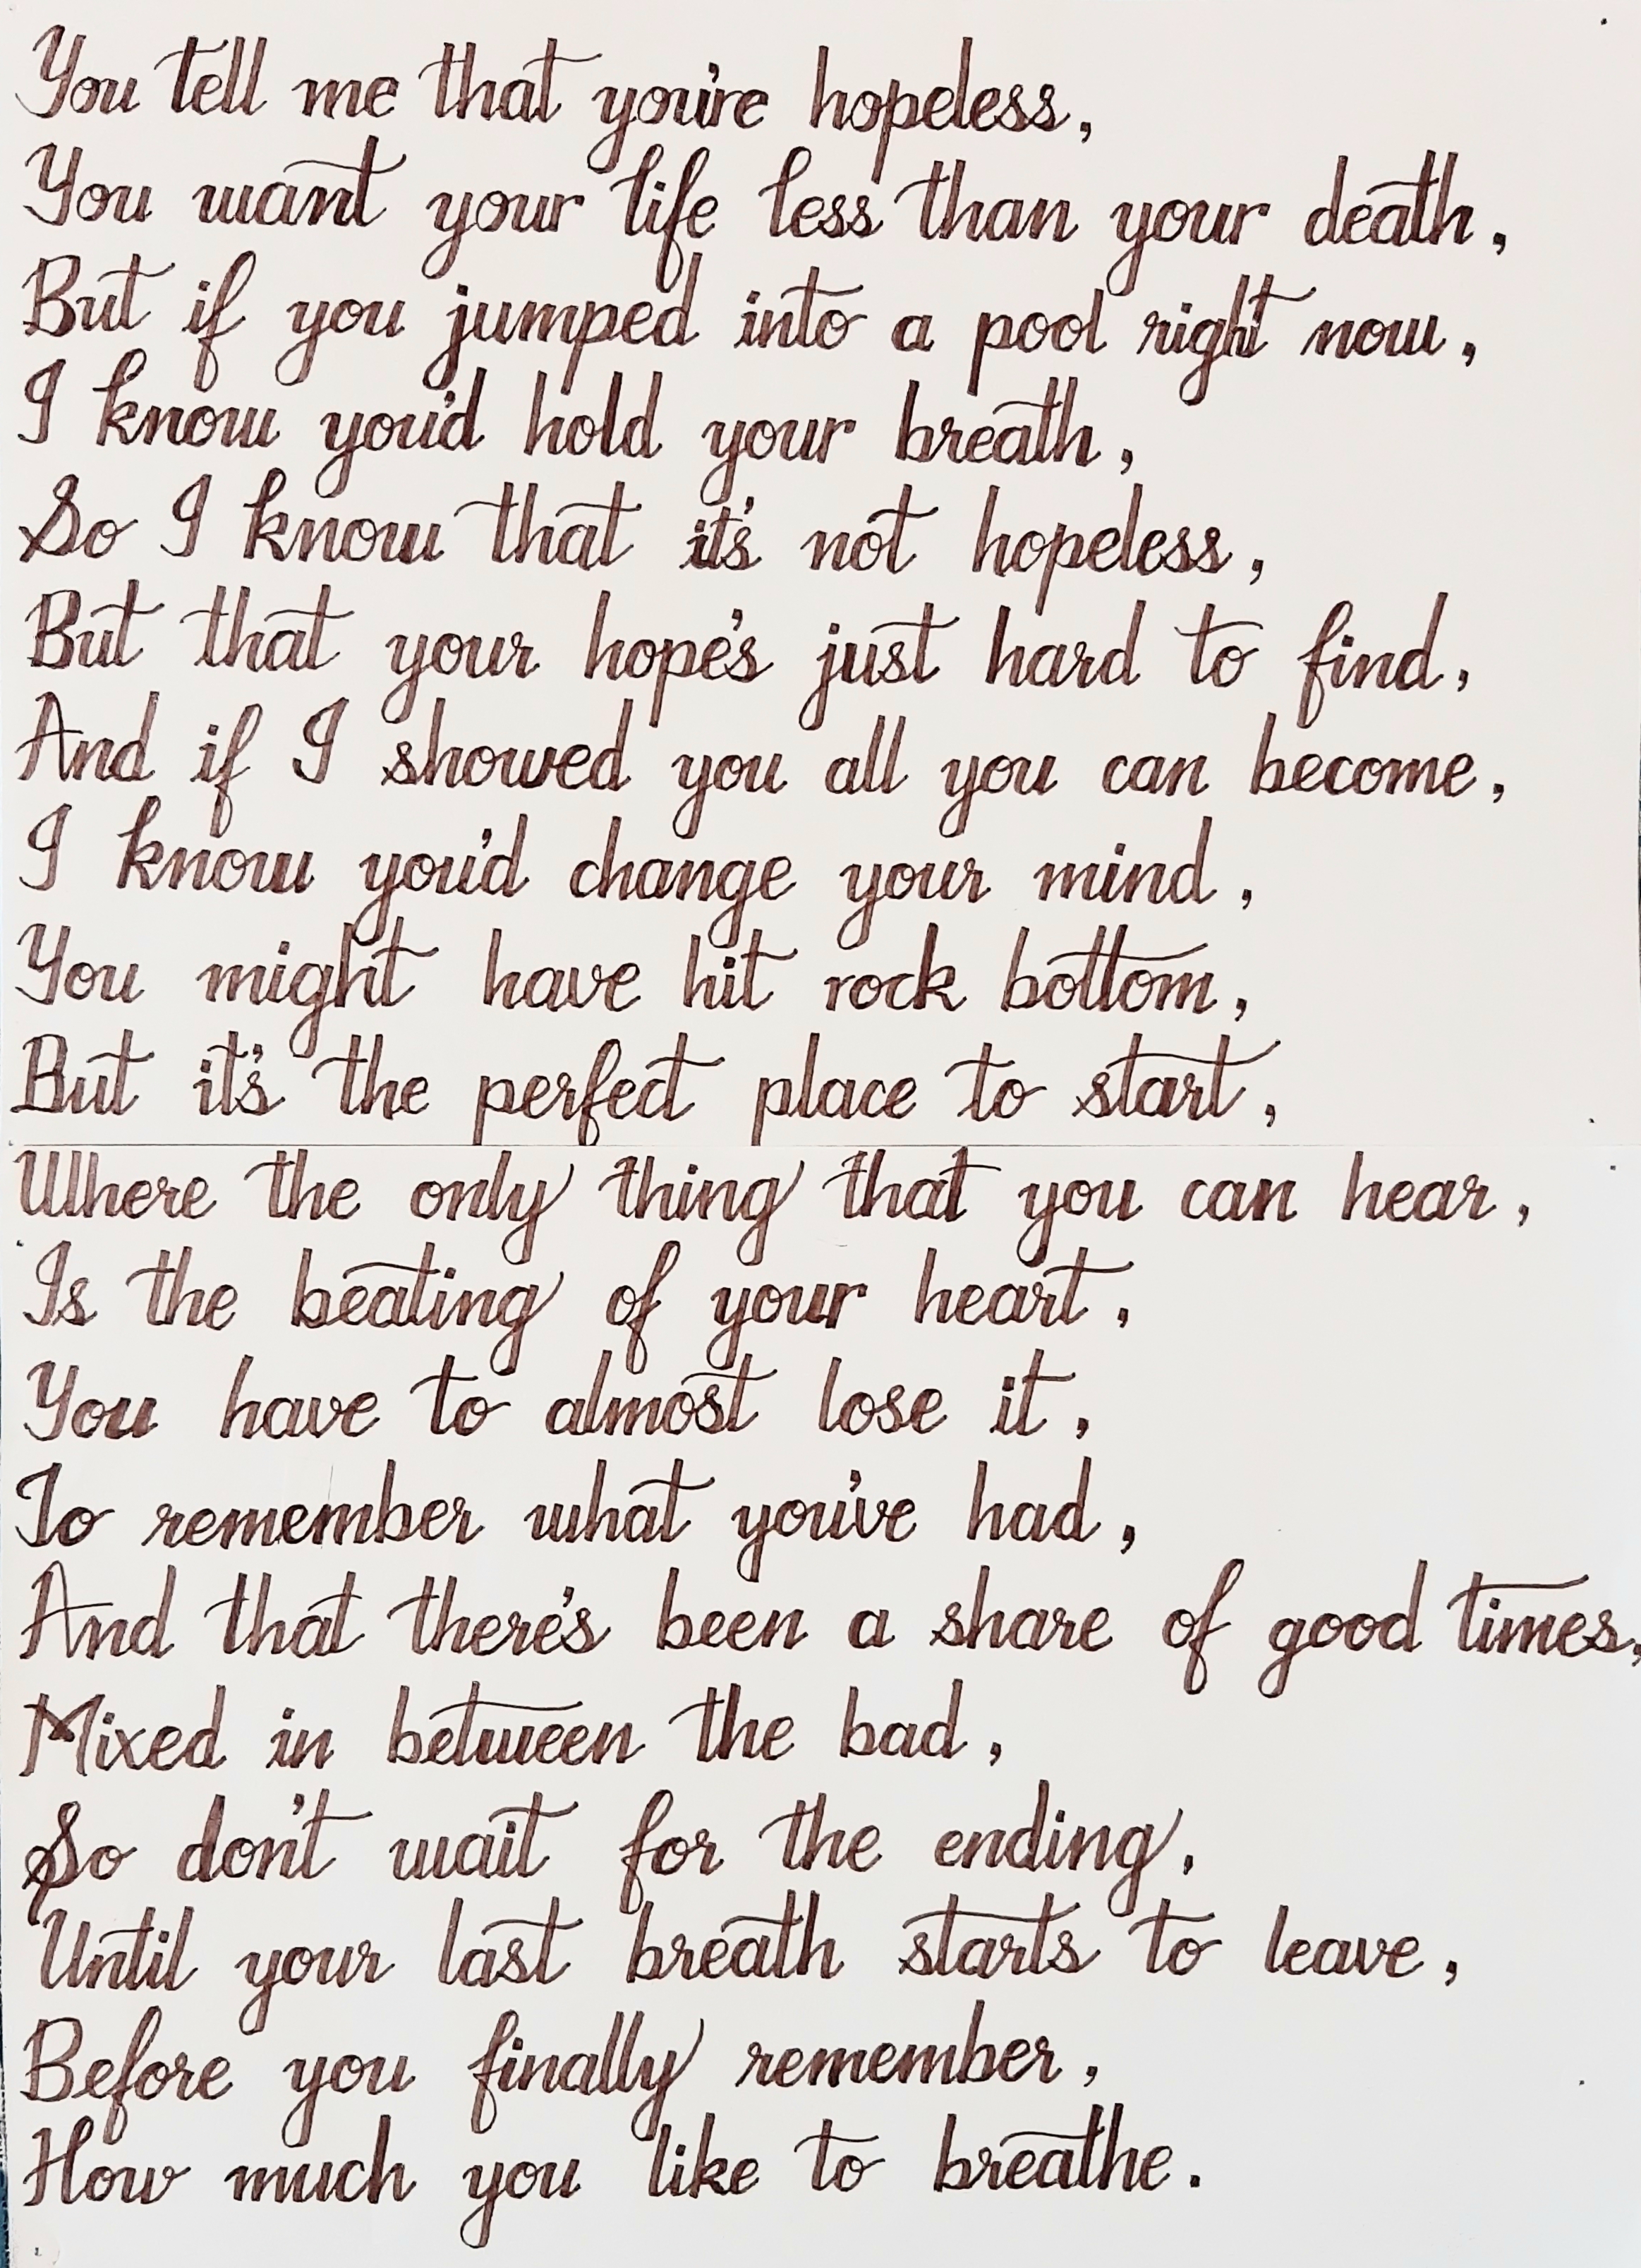 You tell me that you're hopeless,
You want your life less than your death,
But if you jumped into a pool right now,
I know you'd hold your breath,
So I know that it's not hopeless,
But that your hope's just hard to find,
And if I showed you all you can become,
I know you'd change your mind,
You might have hit rock bottom,
But it's the perfect place to start,
Where the only thing that you can hear,
Is the beating of your heart,
You have to almost lose it,
To remember what you've had,
And that there's been a share of good times,
Mixed in between the bad,
So don't wait for the ending,
Until your last breath starts to leave,
Before you finally remember,
How much you like to breathe.